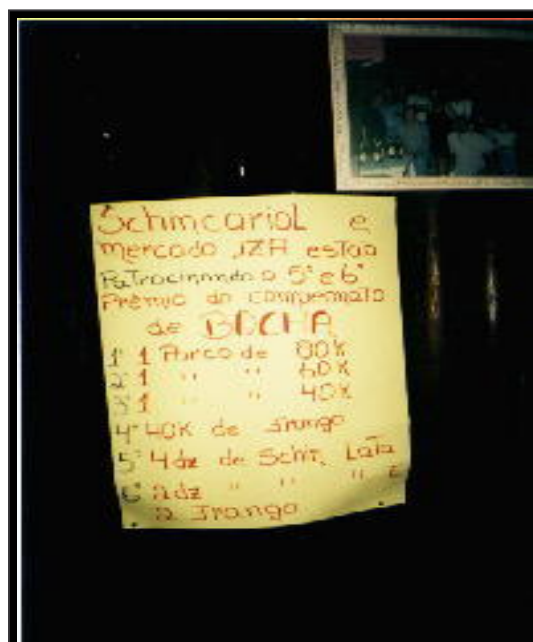 Schincariol e
mercado IZA estão
Patrocinando o 5° e 6°
Prêmio do campeonato
de BOCHA
1° 1 Porco de 80K
2° 1 " " 60K
3° 1 " " 40K
4° 40K de Frango
5° 4 dz de Schin, Lata
6° 2 dz " " " E
2 Frango